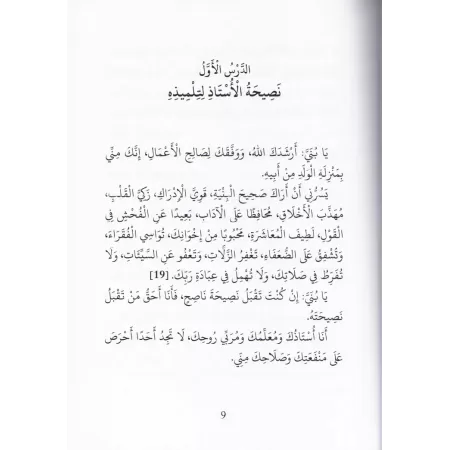 الدَّرْسُ الْأَوَّلُ
نَصِيحَةُ الْأُسْتَاذِ لِتِلْمِيذِهِ
يَا بُنَيَّ: أَرْشَدَكَ اللهُ، وَوَفَّقَكَ لِصَالِحِ الْأَعْمَالِ، إِنَّكَ مِنِّي
بِمَنْزِلَةِ الْوَلَدِ مِنْ أَبِيهِ.
يَسُرُّنِي أَنْ أَرَاكَ صَحِيحَ الْبِنْيَةِ، قَوِيَّ الْإِدْرَاكِ، زَكِيَّ الْقَلْبِ،
مُهَذَّبَ الْأَخْلَاقِ، مُحَافِظًا عَلَى الْآدَابِ، بَعِيدًا عَنِ الْفُحْشِ فِي
الْقَوْلِ، لَطِيفَ الْمُعَاشَرَةِ، مَحْبُوبًا مِنْ إِخْوَانِكَ، تُوَاسِي الْفُقَرَاءَ،
وَتُشْفِقُ عَلَى الضُّعَفَاءِ، تَغْفِرُ الزَّلَّاتِ، وَتَعْفُو عَنِ السَّيِّئَاتِ، وَلَا
تُفَرِّطُ فِي صَلَاتِكَ، وَلَا تُهْمِلُ فِي عِبَادَةِ رَبِّكَ. [19]
يَا بُنَيَّ: إِنْ كُنْتَ تَقْبَلُ نَصِيحَةَ نَاصِحٍ، فَأَنَا أَحَقُّ مَنْ تَقْبَلُ
نَصِيحَتَهُ.
أَنَا أُسْتَاذُكَ وَمُعَلِّمُكَ وَمُرَبِّي رُوحِكَ، لَا تَجِدُ أَحَدًا أَحْرَصَ
عَلَى مَنْفَعَتِكَ وَصَلَاحِكَ مِنِّي.
9